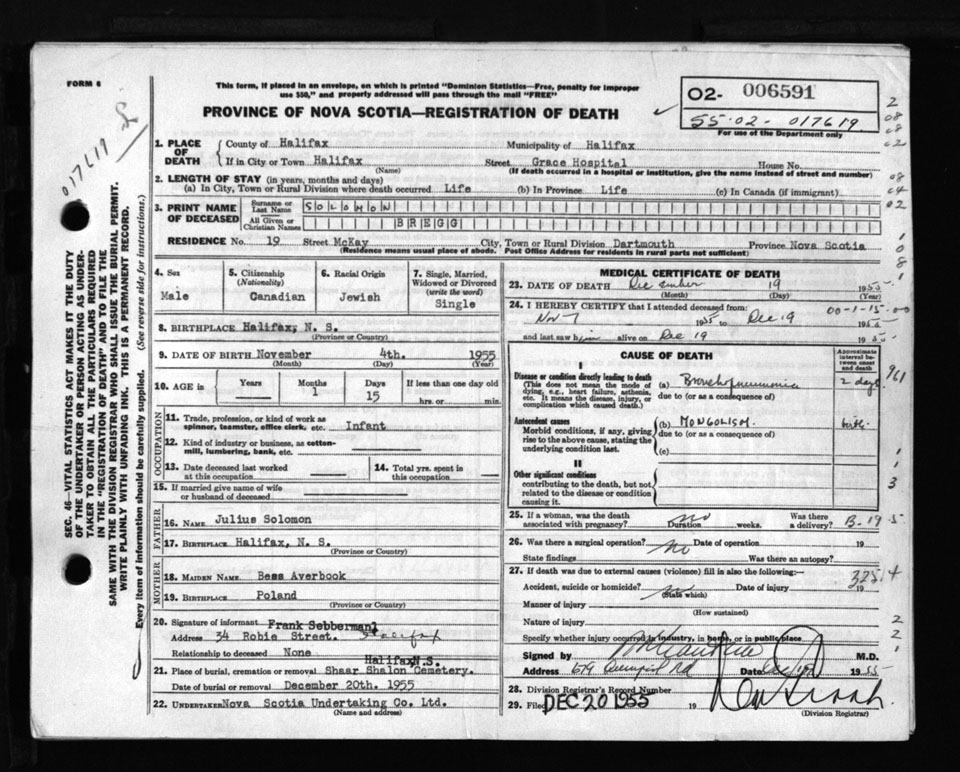 FORM 6
This form, if placed in an envelope, on which is printed "Dominion Statistics—Free, penalty for improper
use $50," and properly addressed will pass through the mail "FREE"
PROVINCE OF NOVA SCOTIA—REGISTRATION OF DEATH
O2- 006591
55-02- 017619
For use of the Department only
017619
SEC. 46—VITAL STATISTICS ACT MAKES IT THE DUTY
OF THE UNDERTAKER OR PERSON ACTING AS UNDER-
TAKER TO OBTAIN ALL THE PARTICULARS REQUIRED
IN THE "REGISTRATION OF DEATH" AND TO FILE THE
SAME WITH THE DIVISION REGISTRAR WHO SHALL ISSUE THE BURIAL PERMIT.
WRITE PLAINLY WITH UNFADING INK. THIS IS A PERMANENT RECORD.
Every item of information should be carefully supplied. (See reverse side for instructions.)
1. PLACE OF DEATH
County of Halifax Municipality of Halifax
If in City or Town Halifax Street Grace Hospital House No.
(Name) (If death occurred in a hospital or institution, give the name instead of street and number)
2. LENGTH OF STAY (in years, months and days)
(a) In City, Town or Rural Division where death occurred Life (b) In Province Life (c) In Canada (if immigrant)
3. PRINT NAME OF DECEASED
Surname or Last Name SOLOMON
All Given or Christian Names BREGG
RESIDENCE No. 19 Street McKay City, Town or Rural Division Dartmouth Province Nova Scotia
(Residence means usual place of abode. Post Office Address for residents in rural parts not sufficient)
4. Sex Male
5. Citizenship (Nationality) Canadian
6. Racial Origin Jewish
7. Single, Married, Widowed or Divorced (write the word) Single
8. BIRTHPLACE Halifax, N. S.
(Province or Country)
9. DATE OF BIRTH November 4th. 1955
(Month) (Day) (Year)
10. AGE Years Months 1 Days 15 If less than one day old hrs. or min.
OCCUPATION
11. Trade, profession, or kind of work as spinner, teamster, office clerk, etc. Infant
12. Kind of industry or business, as cotton-mill, lumbering, bank, etc.
13. Date deceased last worked at this occupation
14. Total yrs. spent in this occupation
15. If married give name of wife or husband of deceased
FATHER
16. NAME Julius Solomon
17. BIRTHPLACE Halifax, N. S.
(Province or Country)
MOTHER
18. MAIDEN NAME Bess Averbook
19. BIRTHPLACE Poland
(Province or Country)
20. Signature of informant Frank Sebberman
Address 34 Robie Street. Halifax
Relationship to deceased None
Halifax N.S.
21. Place of burial, cremation or removal Shaar Shalon Cemetery.
Date of burial or removal December 20th. 1955
22. UNDERTAKER Nova Scotia Undertaking Co. Ltd.
(Name and address)
MEDICAL CERTIFICATE OF DEATH
23. DATE OF DEATH December 19 1955
(Month) (Day) (Year)
24. I HEREBY CERTIFY that I attended deceased from:
00-1-15-00
Nov 7 1955 to Dec 19 1955
and last saw him alive on Dec 19 1955
CAUSE OF DEATH
Approximate interval between onset and death
I
Disease or condition directly leading to death
(This does not mean the mode of dying, e.g., heart failure, asthenia, etc. It means the disease, injury, or complication which caused death.)
(a) Bronchopneumonia 2 days
due to (or as a consequence)
961
Antecedent causes
Morbid conditions, if any, giving rise to the above cause, stating the underlying condition last.
(b) MONGOLISM. birth
due to (or as a consequence)
(c)
II
Other significant conditions
contributing to the death, but not related to the disease or condition causing it.
25. If a woman, was the death associated with pregnancy? No Duration weeks. Was there a delivery? B-19
26. Was there a surgical operation? No Date of operation 19
State findings Was there an autopsy?
27. If death was due to external causes (violence) fill in also the following:—
3254
Accident, suicide or homicide? Date of injury 19
(State which)
Manner of injury
(How sustained)
Nature of injury
Specify whether injury occurred in industry, in home, or in public place
Signed by M.D.
Address 679 Date Dec 19 1955
28. Division Registrar's Record Number
29. Filed DEC 20 1955 19
(Division Registrar)